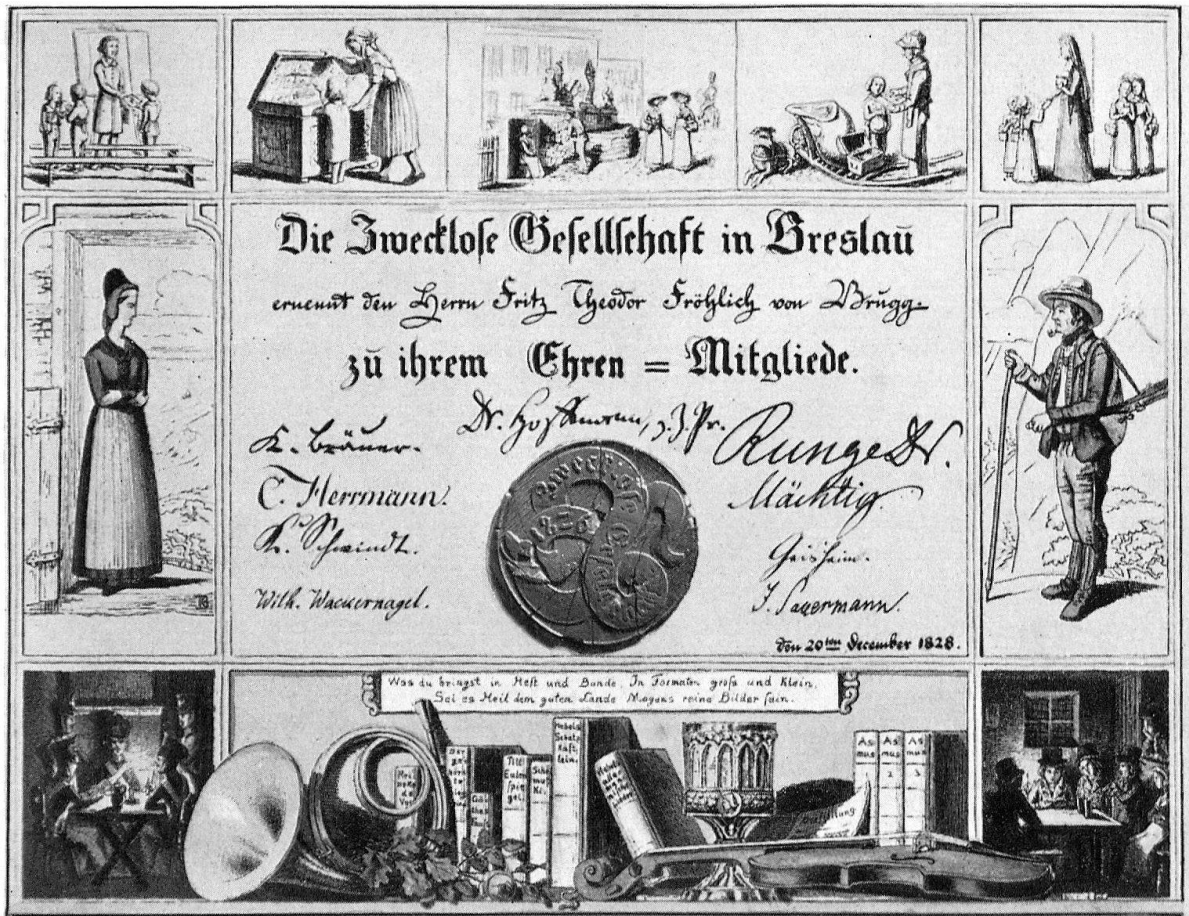 Die Zwecklose Gesellschaft in Breslau
ernennt den Herrn Fritz Theodor Fröhlich von Brugg.
zu ihrem Ehren = Mitgliede.
Dr. Hoffmann, z. Z. Pr.
K. Bräuer.
Runge Dr.
C. Herrmann.
Mächtig
K. Schwindt.
Geisheim.
Wilh. Wackernagel.
J. Sauermann.
Zwecklose Gesellschaft
1826
Den 20ten December 1828.
Was du bringst in Heft und Bande, In Formaten gross und Klein,
Sei es Heil dem guten Lande
reine Bilder
Till
Eulen
spie
gel.
Hebels
Schatz
Käst,
lein.
As
mus
As
mus
2
As
mus
3